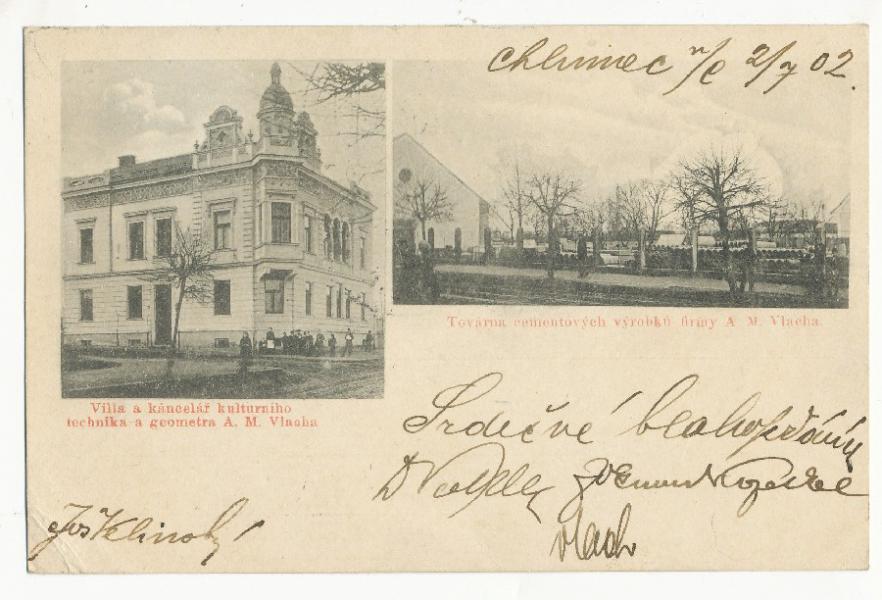 Chlumec n/C 2/7 02.
Továrna cementových výrobků firmy A. M. Vlacha.
Villa a kancelář kulturního
technika a geometra A. M. Vlacha
Srdečné blahopřání
Vlach